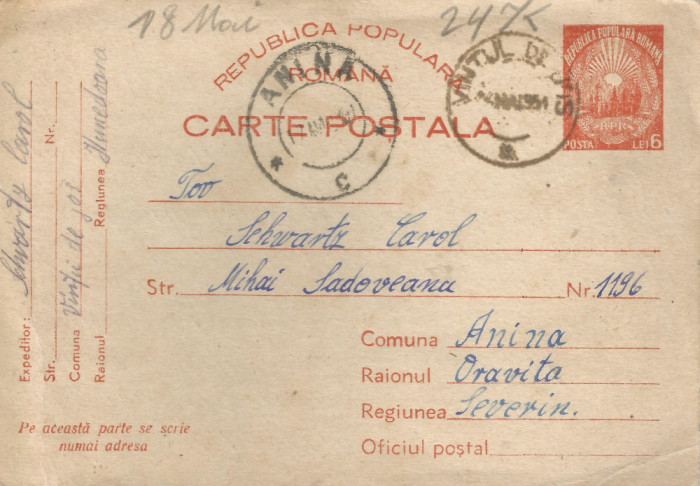 18 Mai
24 K
REPUBLICA POPULARA
ROMÂNĂ
CARTE POȘTALA
REPUBLICA POPULARA ROMANA
RPR
POSTA LEI 6
ANINA
C
VINTUL DE JOS
MAI 951
Tov
Schwartz Carol
Str. Mihai Sadoveana Nr. 1196
Comuna Anina
Raionul Oravita
Regiunea Severin.
Oficiul poștal
Expeditor: Schwartz Carol
Str. Nr.
Comuna Vințu de jos
Raionul Regiunea Hunedoara
Pe această parte se scrie
numai adresa